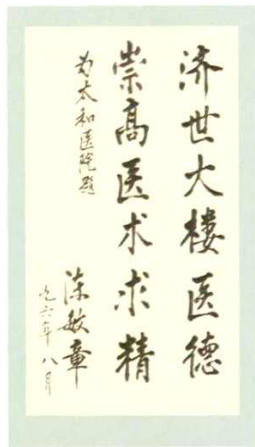 济世大楼医德
崇高医术求精
为太和医院题
陈敏章
九六年八月